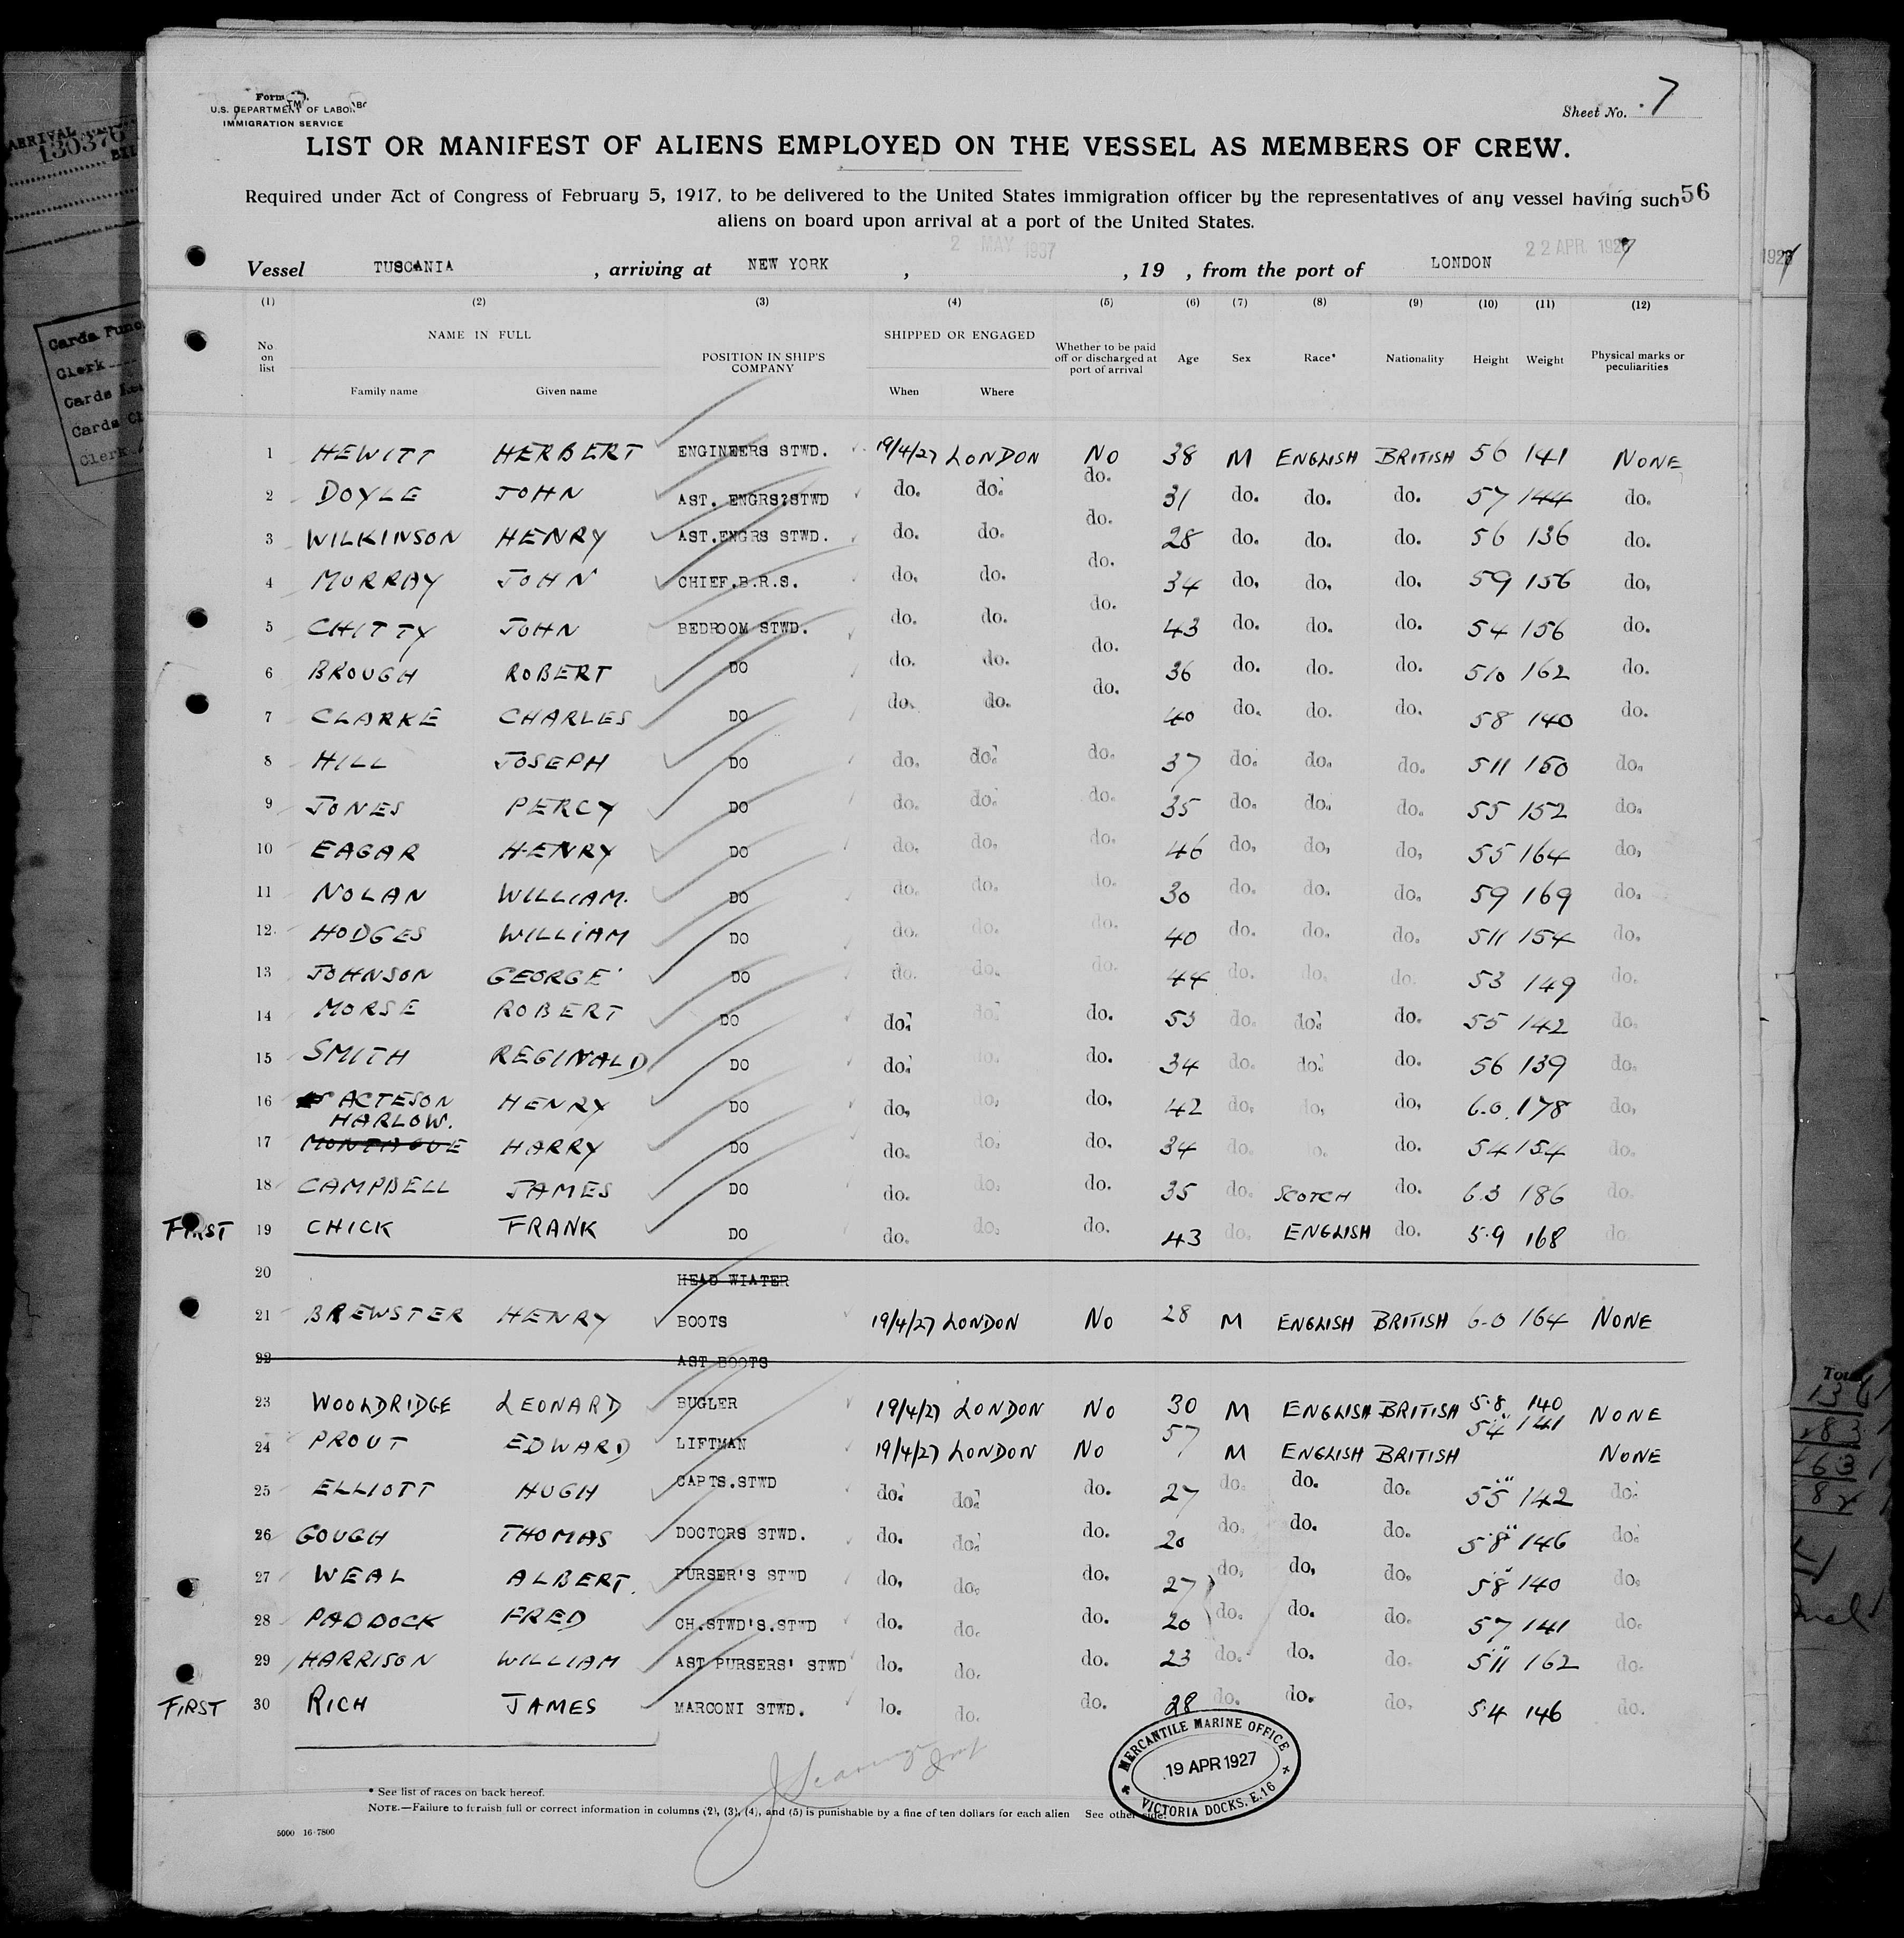 U.S. DEPARTMENT OF LABOR
IMMIGRATION SERVICE
Sheet No. 7
LIST OR MANIFEST OF ALIENS EMPLOYED ON THE VESSEL AS MEMBERS OF CREW.
Required under Act of Congress of February 5, 1917, to be delivered to the United States immigration officer by the representatives of any vessel having such 56
aliens on board upon arrival at a port of the United States.
2 MAY 1937 22 APR. 1927
Vessel TUSCANIA, arriving at NEW YORK, , 19 , from the port of LONDON
(1) (2) (3) (4) (5) (6) (7) (8) (9) (10) (11) (12)
No. on list NAME IN FULL Family name Given name POSITION IN SHIP'S COMPANY SHIPPED OR ENGAGED When Where Whether to be paid off or discharged at port of arrival Age Sex Race* Nationality Height Weight Physical marks or peculiarities
1 HEWITT HERBERT ENGINEERS STWD. 19/4/27 LONDON NO 38 M ENGLISH BRITISH 56 141 NONE
2 DOYLE JOHN AST. ENGRS?STWD do. do. do. 31 do. do. do. 57 144 do.
3 WILKINSON HENRY AST.ENGRS STWD. do. do. do. 28 do. do. do. 56 136 do.
4 MURRAY JOHN CHIEF.B.R.S. do. do. do. 34 do. do. do. 59 156 do.
5 CHITTY JOHN BEDROOM STWD. do. do. do. 43 do. do. do. 54 156 do.
6 BROUGH ROBERT DO do. do. do. 36 do. do. do. 510 162 do.
7 CLARKE CHARLES DO do. do. do. 40 do. do. do. 58 140 do.
8 HILL JOSEPH DO do. do. do. 37 do. do. do. 511 150 do.
9 JONES PERCY DO do. do. do. 35 do. do. do. 55 152 do.
10 EAGAR HENRY DO do. do. do. 46 do. do. do. 55 164 do.
11 NOLAN WILLIAM. DO do. do. do. 30 do. do. do. 59 169 do.
12 HODGES WILLIAM DO do. do. do. 40 do. do. do. 511 154 do.
13 JOHNSON GEORGE DO do. do. do. 44 do. do. do. 53 149 do.
14 MORSE ROBERT DO do. do. do. 53 do. do. do. 55 142 do.
15 SMITH REGINALD DO do. do. do. 34 do. do. do. 56 139 do.
16 ACTESON HENRY DO do. do. do. 42 do. do. do. 6.0 178 do.
HARLOW.
17 MONTAGUE HARRY DO do. do. do. 34 do. do. do. 54 154 do.
18 CAMPBELL JAMES DO do. do. do. 35 do. SCOTCH do. 6.3 186 do.
FIRST 19 CHICK FRANK DO do. do. do. 43 do. ENGLISH do. 5.9 168 do.
20 HEAD WIATER
21 BREWSTER HENRY BOOTS 19/4/27 LONDON NO 28 M ENGLISH BRITISH 6-0 164 NONE
22 AST BOOTS
23 WOOLDRIDGE LEONARD BUGLER 19/4/27 LONDON NO 30 M ENGLISH BRITISH 5.8 140 NONE
24 PROUT EDWARD LIFTMAN 19/4/27 LONDON NO 57 M ENGLISH BRITISH 54 141 NONE
25 ELLIOTT HUGH CAPTS.STWD do. do. do. 27 do. do. do. 55 142 do.
26 GOUGH THOMAS DOCTORS STWD. do. do. do. 20 do. do. do. 58 146 do.
27 WEAL ALBERT. PURSER'S STWD do. do. do. 27 do. do. do. 58 140 do.
28 PADDOCK FRED CH.STWD'S.STWD do. do. do. 20 do. do. do. 57 141 do.
29 HARRISON WILLIAM AST PURSERS' STWD do. do. do. 23 do. do. do. 511 162 do.
FIRST 30 RICH JAMES MARCONI STWD. do. do. do. 28 do. do. do. 5.4 146 do.
MERCANTILE MARINE OFFICE
19 APR 1927
VICTORIA DOCKS, E.16
* See list of races on back hereof.
NOTE.—Failure to furnish full or correct information in columns (2), (3), (4), and (5) is punishable by a fine of ten dollars for each alien See other side.
5000 16-7800